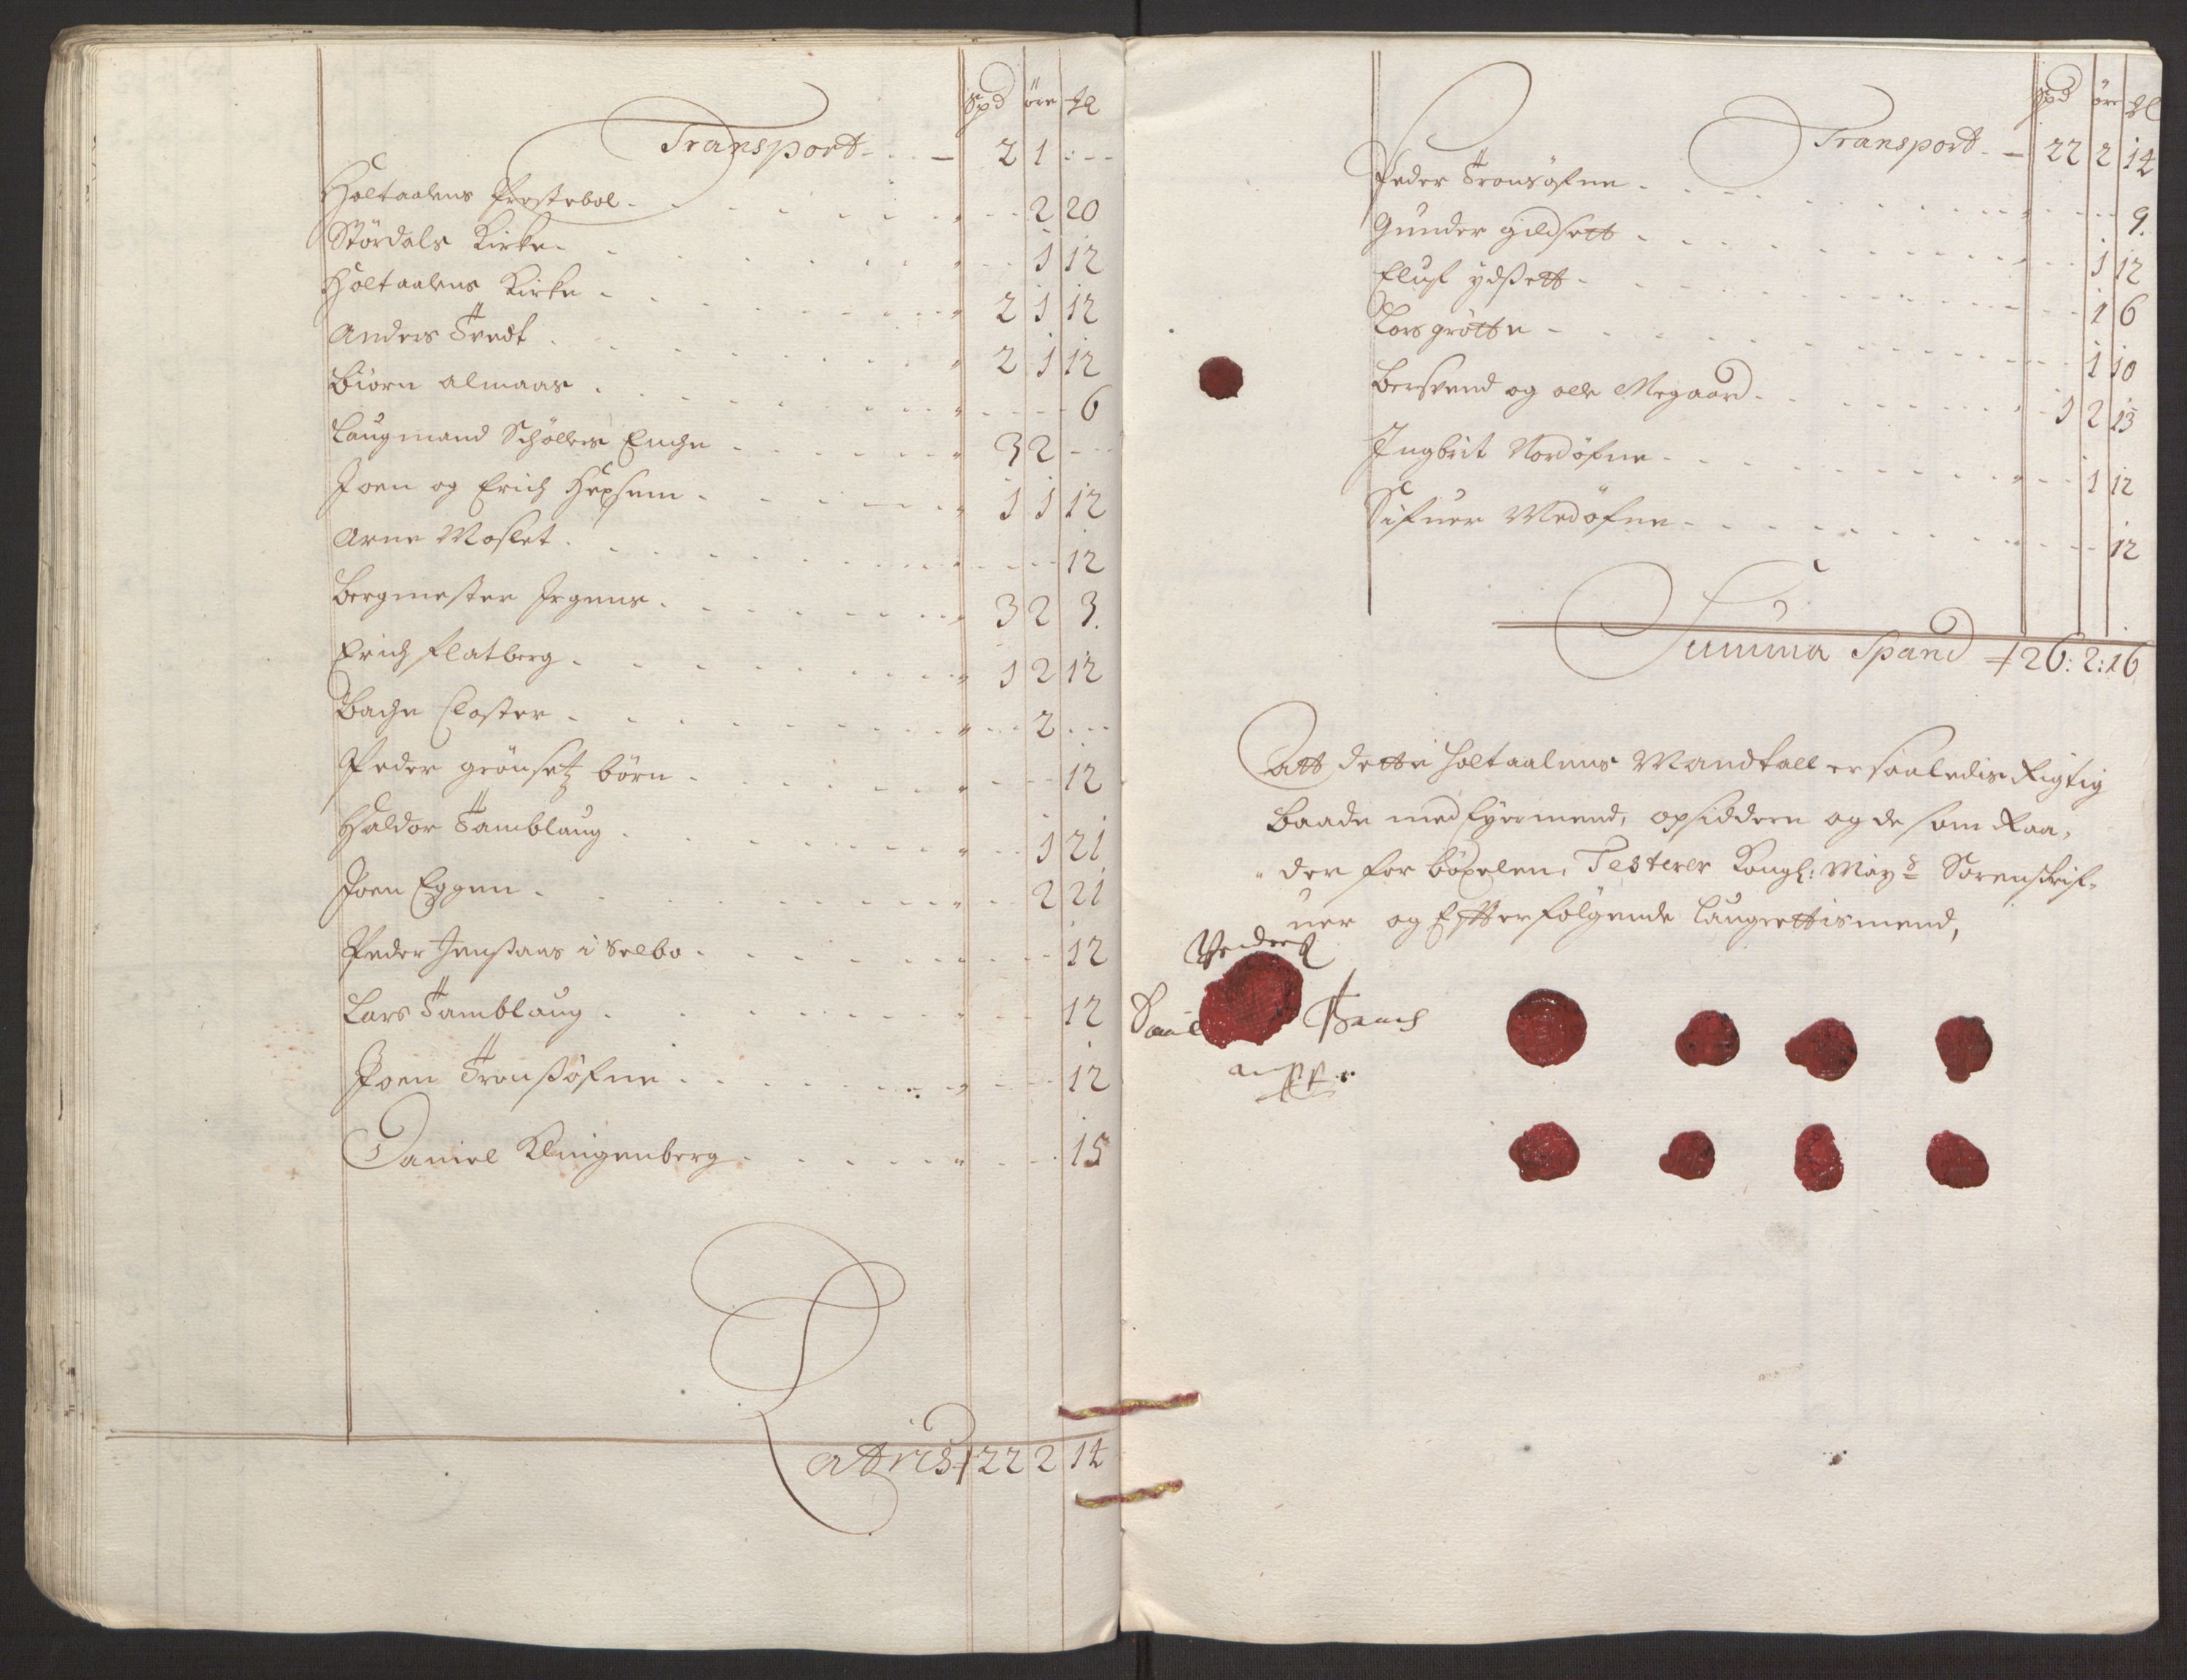 Spd öre ℳl
Transport - - - 2 1 - - -
Holtaalens Prestebol - - - 2 20
Stördals Kirke - - - 1 12
Holtaalens Kirke - - - 2 1 12
Anders Tvedt - - - 2 1 12
Biörn almaas - - - 6
Laugmand Schöllers Enche - - - 3 2 - -
Joen og Erich Hepsem - - - 1 1 12
Arne Moslet - - - 12
Bergmester Irgens - - - 3 2 3.
Erich flatberg - - - 1 2 12
Bache Closter - - - 2 - - -
Peder grönsetz börn - - - 12
Haldor Tamblaug - - - 1 21
Joen Eggen - - - 2 21
Peder Jenstaas i Selbo - - - 12
Lars Tamblaug - - - 12
Joen Tronsöfne - - - 12
Daniel Klingenberg - - - 15
Latris 22 2 14
Spd öre ℳl
Transport - - 22 2 14
Peder Tronsöfne - - - 9.
Gunder gildsett - - - 1 12
Eluf ydsett - - - 1 6
Lars grötte - - - 1 10
Bersvend og olle Megaard - - - 1 2 13
Ingbrit Nordöfne - - - 1 12
Sifuer Medöfne - - - 12
Summa Spand 26: 2: 16
Att dette Holtaalens Mandtall er saaledis Rigtig
Baade med Eyermend, opsiddere og de som Raa,
der for böxelen, Testerer Kongl: Mayˢ Sorenschrif,
uer og Efterfölgende Laugrettismend,
Peders